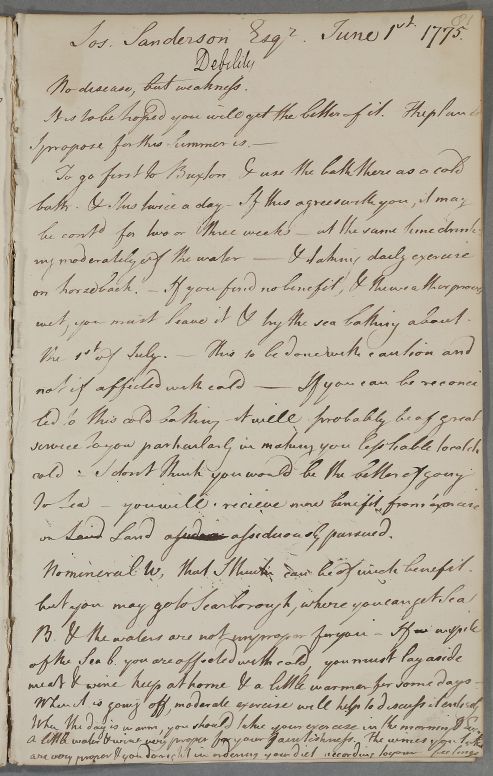 81
Jos. Sanderson Esqr. June 1st. 1775.
Debility
No disease, but weakness.
It is to be hoped you will get the better of it. The plan is
I propose for this Summer is. —
To go first to Buxton & use the bath there as a cold
bath. & this twice a day — If this agrees with you, it may
be contd for two or three weeks — at the same time drink-
ing moderately of the water — & taking daily exercise
on horseback. — If you find no benefit, & the weather proves
wet, you must leave it & try the sea bathing about
the 1st of July. — This to be done with caution and
not if affected with cold — If you can be reconci
led to this cold bathing it will probably be of great
service to you particularly in making you less liable to catch
cold. I don't think you would be the better of going
to Sea — you will recieve more benifit from exercise
on Land Land assiduously pursued.
No mineral W, that I think can be of much benefit.
but you may go to Scarborough, where you can get Sea
B. & the waters are not improper for you — If in spite
of the Sea b. you are affected with cold, you must lay aside
meat & wine keep at home & a little warmer for some days —
When it is going off, moderate exercise will help to discuss it entirely
When the day is warm, you should take your exercise in the morning &
a little water & wine very proper for your faintishness. The wines you
are very proper & you do right in ordering your diet according to your feelings